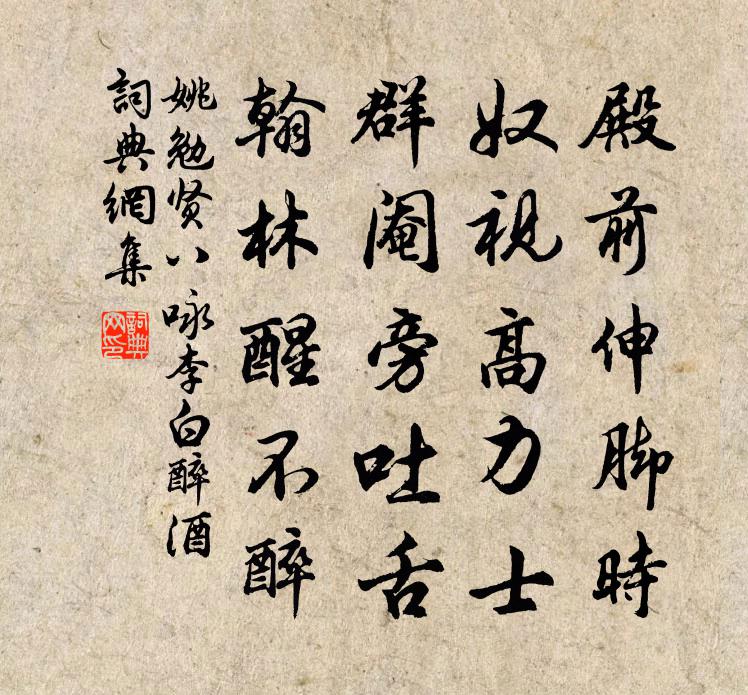 殿前伸脚時
奴視高力士
群閹旁吐舌
翰林醒不醉
姚勉贤八咏李白醉酒
詞典網集
詞典网印